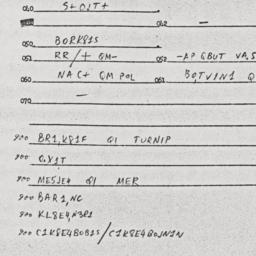 040 S+O2T+
042 —
050 BORK81S
051 RR/+ QM- 052 -AP QBUT VA,S
060 NAC+ QM POL 061 BO,TV1N1 Q
070 —
900 BR1,K81F Q1 TURNIP
900 O,X1T
900 MES1E4 Q1 MER
900 BAR1,NC
900 KL8E4N3R1
900 C1K8E4BOB1S/C1K8E4BOJN1N